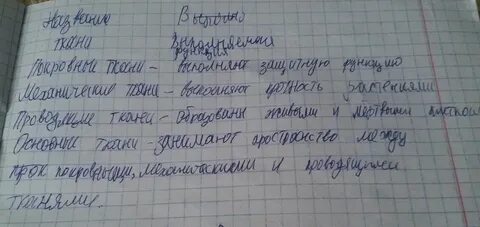 Название Выполня
ткани Выполняемая
функция
Покровные ткани - выполняют защитную функцию
Механические ткани - выполняют прочность растениями
Проводящие ткани - образованы живыми и мёртвыми клеткой
Основные ткани - занимают пространство между
покровными, механическими и проводящими
тканями.